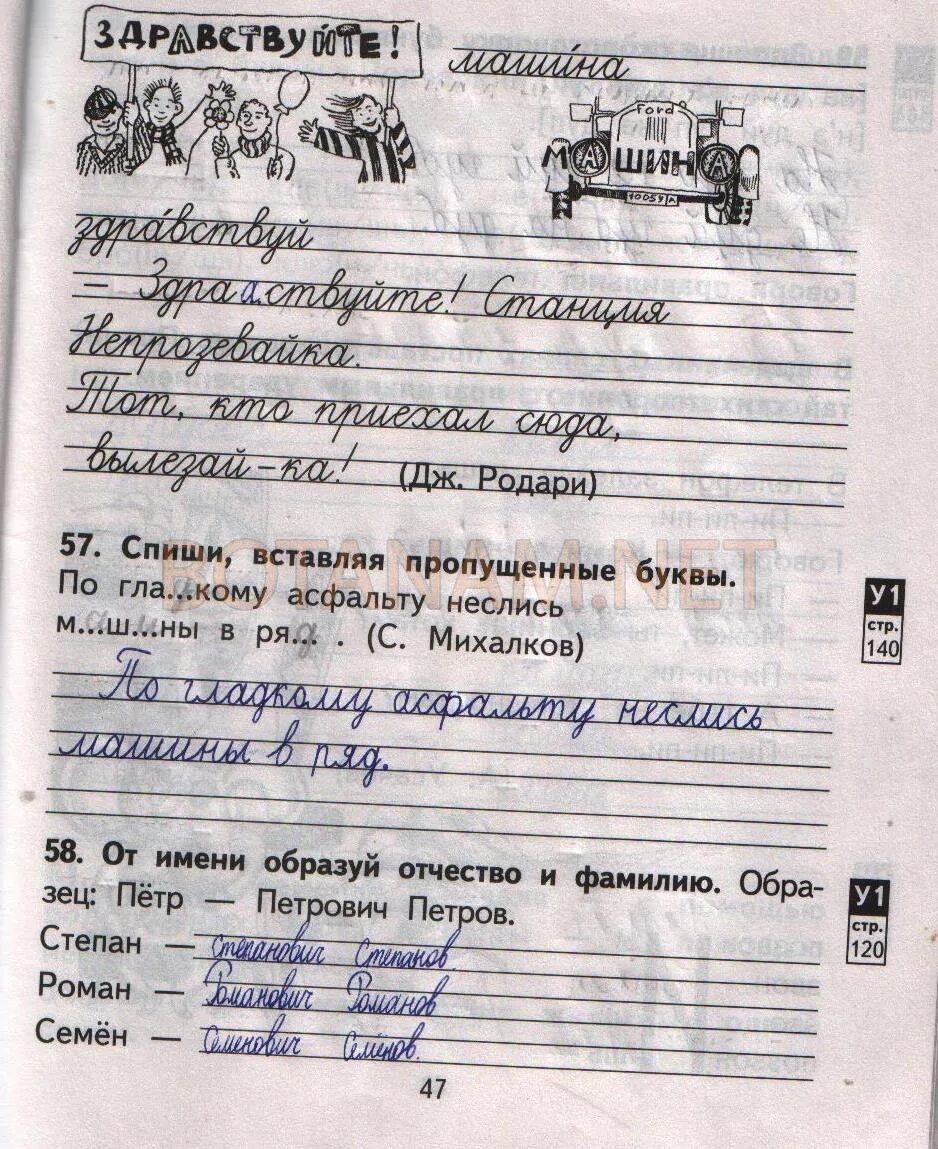 ЗДРАВСТВУЙТЕ!
маши́на
Ford
МАШИНА
10059 А
здра́вствуй
– Здраа.ствуйте! Станция
Непрозевайка.
Тот, кто приехал сюда,
вылезай-ка! (Дж. Родари)
57. Спиши, вставляя пропущенные буквы.
По гла...кому асфальту неслись
м...ш...ны в ря... . (С. Михалков)
У1
стр.
140
По гладкому асфальту неслись
машины в ряд.
58. От имени образуй отчество и фамилию. Обра-
зец: Пётр — Петрович Петров.
У1
стр.
120
Степан — Степанович Степанов.
Роман — Романович Романов
Семён — Семенович Семёнов.
47
BOTANAM.NET